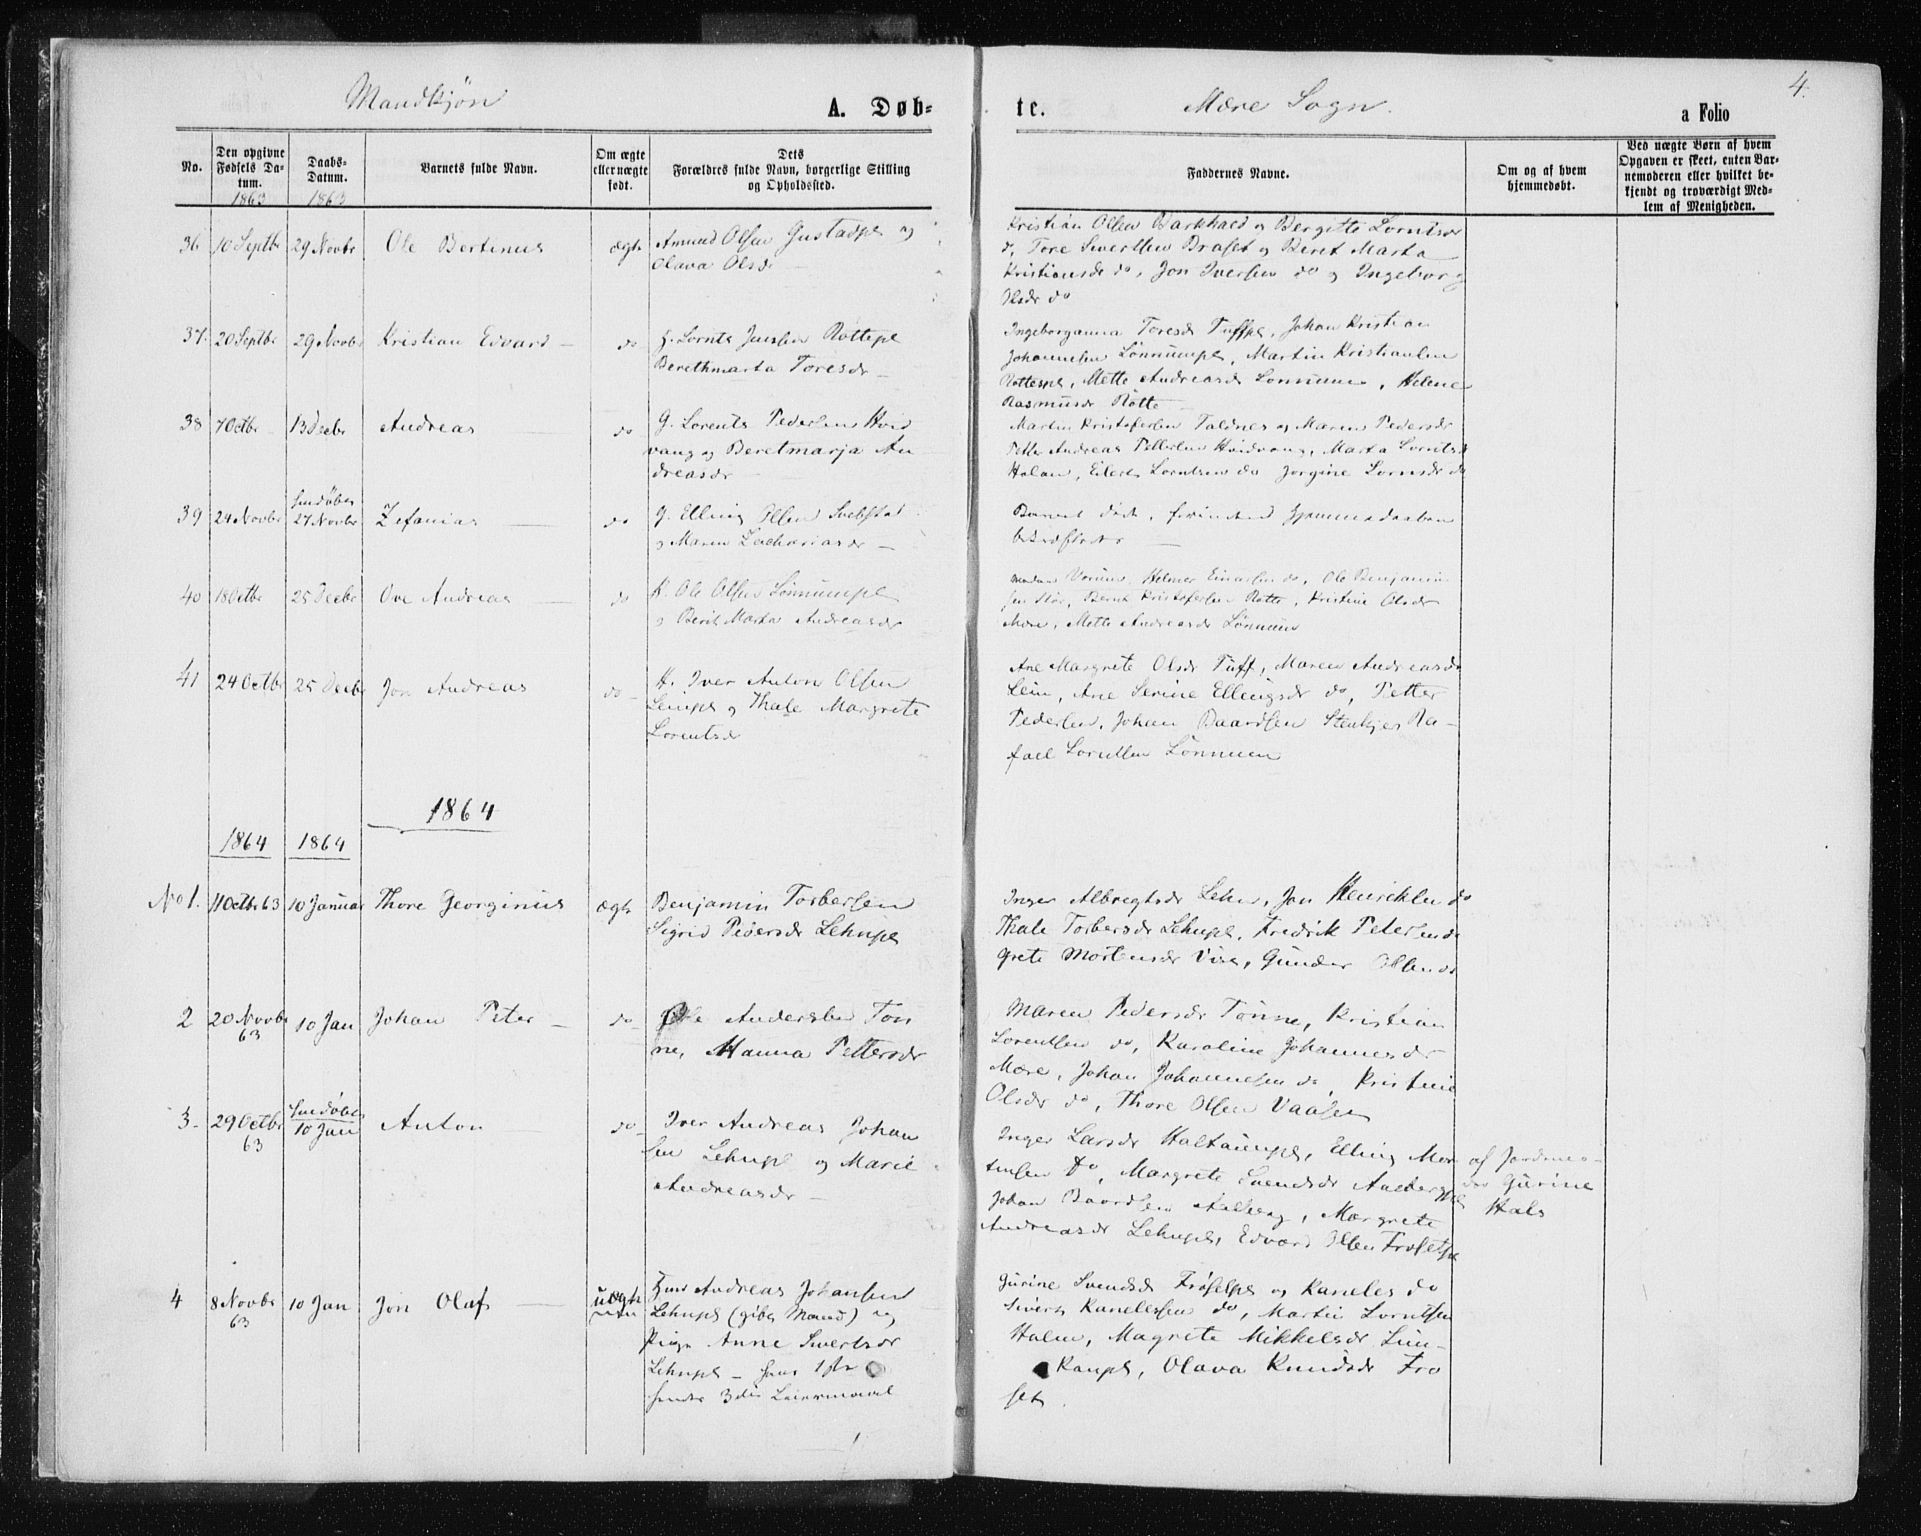 4.
Mandkjøn
A. Døb-
te.
Mære Sogn.
a Folio
No.
Den opgivne
Fødsels Da-
tum.
1863
Daabs-
Datum.
1863
Barnets fulde Navn.
Om ægte
eller uægte
født.
Dets
Forældres fulde Navn, borgerlige Stilling
og Opholdssted.
Faddernes Navne.
Om og af hvem
hjemmedøbt.
Ved uægte Børn af hvem
Opgaven er skeet, enten Bar-
nemoderen eller hvilket be-
kjendt og troværdigt Med-
lem af Menigheden.
36 10 Septbr 29 Novbr Ole Bertinus ægte
Amund Olsen Gustadpl og
Olava Olsdr
Kristian Olsen Barkhald og Bergitte Lorntsdr
do, Tore Sivertsen Braset og Beret Marta
Kristiansdr do, Jon Iversen do og Ingeborg
Olsdr do
37. 20 Septbr 29 Novbr Kristian Edvard do
G. Lornts Jenssen Rottepl
Berethmarta Toresdr
Ingeborganna Toresdr Tuffpl, Johan Kristian
Johannesen Lønnumpl, Martin Kristiansen
Rottespl, Mette Andreasdr Lønnum, Helene
Rasmusdr Rotte
38 7 Octbr 13 Decbr Andreas do
G. Lorents Pedersen Hvid
vang og Beretmarja An
dreasdr
Martin Kristofersen Taldnes og Maren Pedersdr
Petter Andreas Pettersen Hvidvang, Marta Lorntsdr
Halan, Eilert Lorntsen do Jørgine Lorntsdr do
39 24 Novbr
hmdøbt
27 Novbr Zefanias do
G. Elling Olsen Svebstad
og Maren Zachariasdr
Barnet død, forinden Hjemmedaaben
bekræftet
40 18 Octbr 25 Decbr Ove Andreas do
H. Ole Olsen Lønnumpl
og Berit Marta Andreasdr
Helmer Einarsen do, Ole Benjamin
sen Kristofersen Rotte, Kristine Olsdr
Mære, Mette Andreasdr Lønnum
41 24 Octbr 25 Decbr Jon Andreas do
H. Iver Anton Olsen
Leinpl og Thale Margrete
Lorentsdr
Ane Margrete Olsdr Tuff, Maren Andreasdr
Lein, Ane Serine Ellingsdr do, Petter
Pedersen, Johan Baardsen Stenkjer Ra-
fael Lorntsen Lønnum
1864
1864 1864
No 1. 11 Octbr 63 10 Januar Thore Georginus ægte
Benjamin Torbersen
Sigrid Pedersdr Lehnpl
Inger Albregtsdr Lehn, Jon Henriksen do
Thale Torbersdr Lehnpl, Fredrik Petersen do
Grete Mortensdr Vist, Gunder Olsen do
2 20 Novbr
63
10 Jan Johan Peter do
Ole Andersen Tøn
ne, Hanna Pettersdr
Maren Pedersdr Tønne, Kristian
Lorentsen do, Karoline Johannesdr
Mære, Johan Johannesen do, Kristine
Olsdr do, Thore Olsen Vaasen
3. 29 Octbr
63
hmdøbt
10 Jan Anton do
Iver Andreas Johan
sen Lehnpl og Marie
Andreasdr
Inger Larsdr Haltaunpl, Elling Mor
tensen do, Margrete Svendsdr Aalbergpl
Johan Baardsen Aalberg, Margrete
Andreasdr Lehnpl, Edvard Olsen Frøsetpl
af Jordemo-
der Gurine
Hals
4 8 Novbr
63
10 Jan Jon Olaf uægte
Andreas Johansen
Lehnpl (gift Mand) og
Pige Anne Sivertsdr
Lehnpl – hans 1ste
hendes 3die Leiermaal
Gurine Svendsdr Frøsetpl og Kaneles do
Sivert Kanelessen do, Martin Lorntsen
Halen, Magrete Mikkelsdr Lein-
Kaupl, Olava Knudsdr Frø
set.